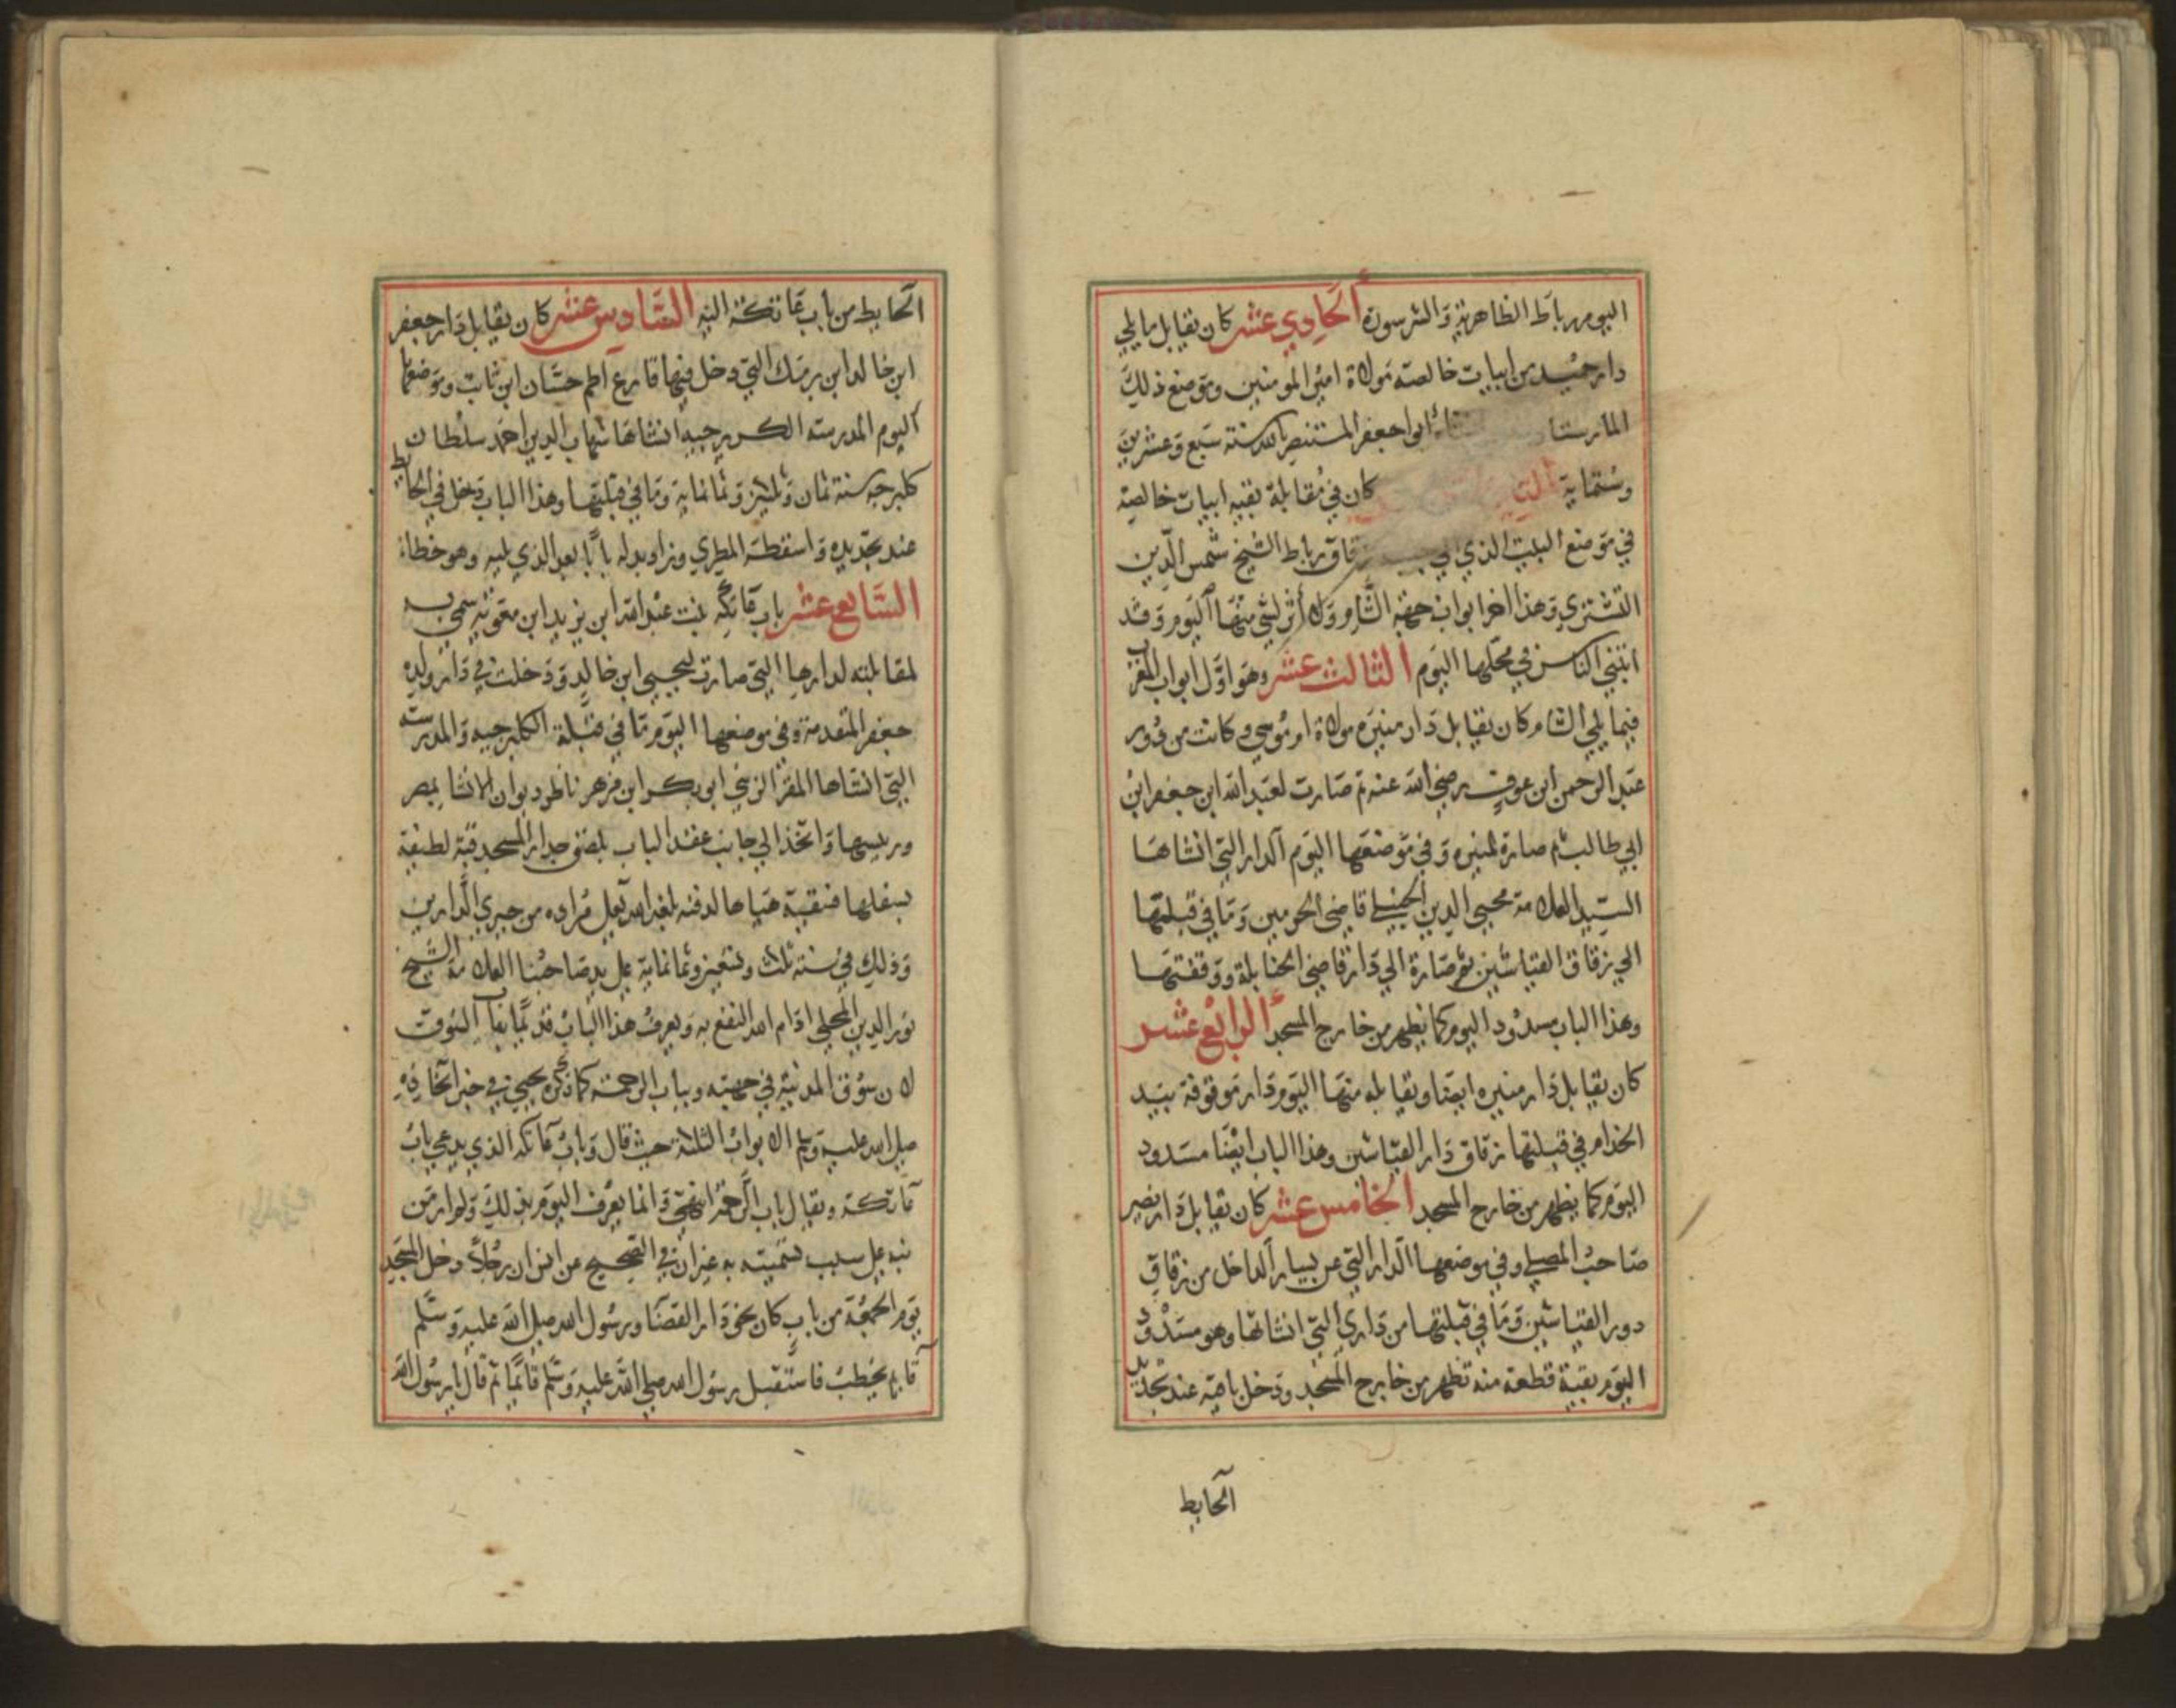 اليوم رباط الظاهرية والشرسورة الحادي عشر كان يقابل مايلي
دار حميد من ابيات خالصة مولاة امير المومنين وموضع ذلك
المارستان انشاء ابو اجعفر المستنصر بالله سنة سبع وعشرين
وستماية الثاني كان في مقابلة بقية ابيات خالصة
في موضع البيت الذي زقاق رباط الشيخ شمس الدين
التشتري وهذا اخر ابواب جهة الشام ولا أثر لشي منها اليوم وقد
ابتني الناس في محلها اليوم الثالث عشر وهو اول ابواب المغرب
فيما يلي الشام كان يقابل دار منيرة مولاة ام موسي وكانت من دور
عبد الرحمن ابن عوف رضي الله عنه ثم صارت لعبد الله ابن جعفر ابن
ابي طالب ثم صارة لمنيره وفي موضعها اليوم الدار التي انشاها
السيد العلامة محيي الدين الحنبلي قاضي الحرمين وما في قبلتها
الي زقاق القياشين ثم صارة الي دار قاضي الحنابلة ووقفتها
وهذا الباب مسدود اليوم كما يظهر من خارج المسجد الرابع عشر
كان يقابل دار منيره ايضا ويقابله منها اليوم دار موقوفة بيد
الخدام في قبلتها زقاق دار القياشين وهذا الباب ايضا مسدود
اليوم كما يظهر من خارج المسجد الخامس عشر كان يقابل دار نصير
صاحب المصلي وفي موضعها الدار التي عن يسار الداخل من زقاق
دور القياشين وما في قبلتها من داري التي انشاتها وهو مسدود
اليوم بقية قطعة منه تظهر من خارج المسجد ودخل باقيه عند تجديد
الحايط
الحايط من باب عاتكة اليه السادس عشر كان يقابل دار جعفر
ابن خالد ابن برمك التي دخل فيها فارع اطم حسان ابن ثابت وموضعها
اليوم المدرسة الكلبرجيه انشاها شهاب الدين احمد سلطان
كلبرجه سنة ثمان وثلثين وثمانماية وما في قبلتها وهذا الباب دخل في الحايط
عند تجديده واسقطه المطري وزاد بدله بابا بعد الذي يليه وهو خطاء
السابع عشر باب عاتكه بنت عبد الله ابن يزيد ابن معوية سمي به
لمقابلته لدارها التي صارت ليحيي ابن خالد ودخلت في دار ولده
جعفر المتقدمة وفي موضعها اليوم ما في قبلة الكلبرجيه والمدرسة
التي انشاها المقر الزيني ابو بكر ابن مزهر ناظر ديوان الانشا بمصر
وريسها واتخذ الي جانب عقد الباب بلصق جدار المسجد قبة لطيفة
بسفلها فسقية هياها لدفنه بلغه الله تعلي مراده من خيري الدارين
وذلك في سنة ثلث وتسعين وثمانماية علي يد صاحبنا العلامة الشيخ
نور الدين المحلي ادام الله النفع به ويعرف هذا الباب قديما بباب السوق
لان سوق المدينة في جهته وبباب الرحمة كما ذكره يحيي في خبر اتخاذه
صلي الله عليه وسلم الابواب الثلاثة حيث قال وباب عاتكه الذي يدعي باب
عاتكة ويقال باب الرحمة انتهي وانما يعرف اليوم بذلك ولم ار من
نبه علي سبب تسميته به غير ان في الصحيح عن انس ان رجلا دخل المسجد
يوم الجمعة من باب كان نحو دار القضا ورسول الله صلي الله عليه وسلم
قايم يخطب فاستقبل رسول الله صلي الله عليه وسلم قائما ثم قال يا رسول الله